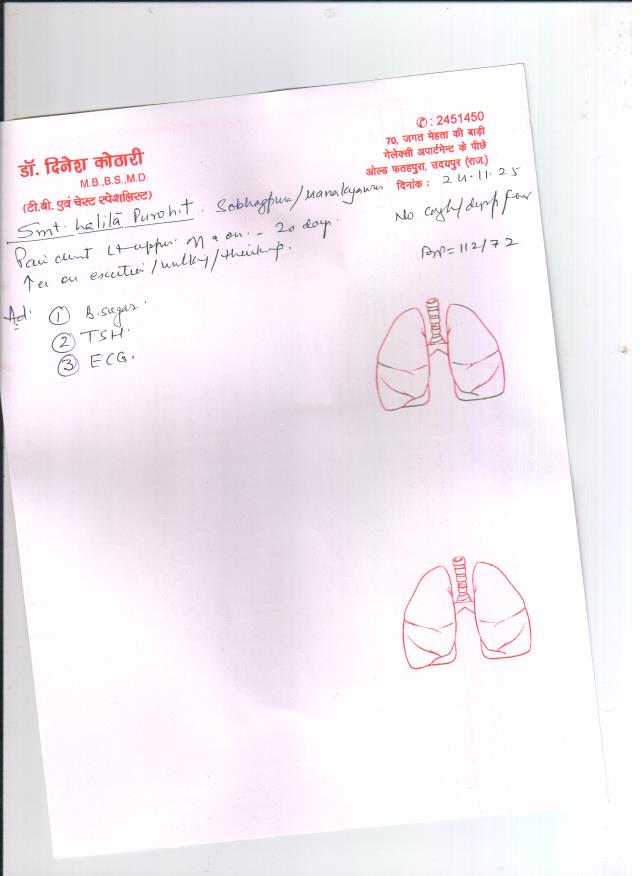 ✆: 2451450
70, जगत मेहता की बाड़ी
गेलेक्सी अपार्टमेन्ट के पीछे
ओल्ड फतहपुरा, उदयपुर (राज.)
दिनांक : 24.11.25
डॉ. दिनेश कोठारी
M.B.,B.S.,M.D.
(टी.बी. एवं चेस्ट स्पेशलिस्ट)
Smt. Lalita Purohit. Sobhagpura/
No cough/
Pain chest Lt upper off & on - 20 days.
↑es on exertion/walking/
BP = 112/72
Ad.
① B. sugar.
② TSH.
③ ECG.